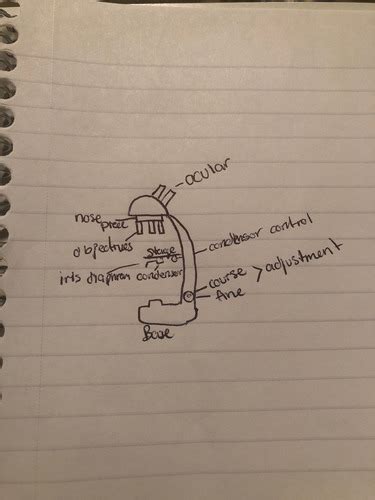 ocular
nose
piece
objectives
stage
condensor control
iris diaphram condensor
course > adjustment
fine
Base